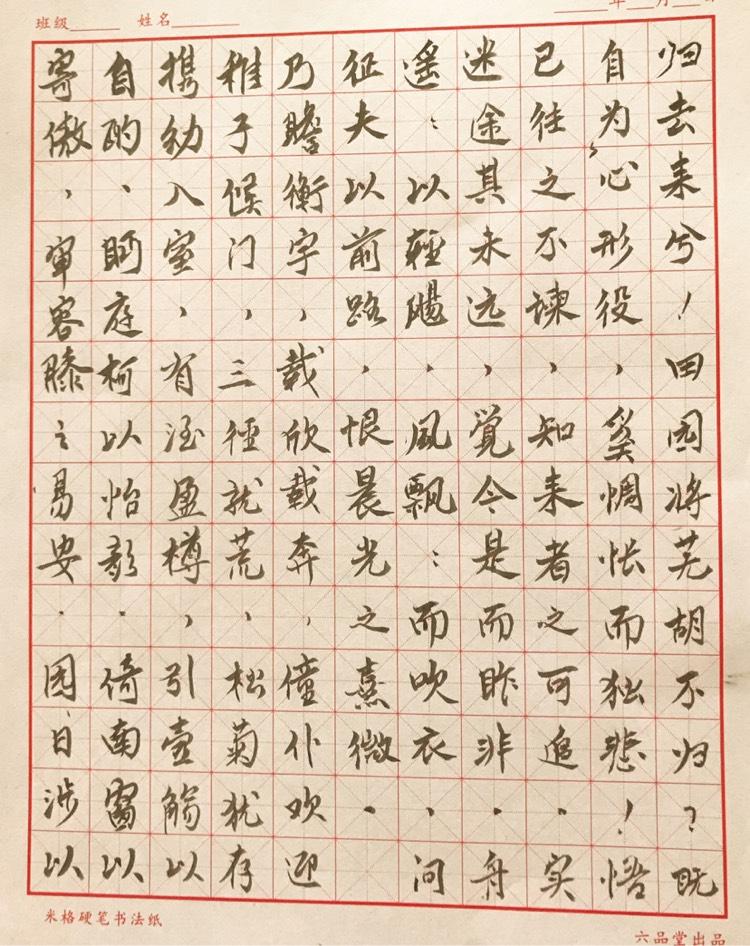 班级 姓名
年 月
归去来兮！田园将芜胡不归？既
自为心形役，奚惆怅而独悲！悟
已往之不谏，知来者之可追。实
迷途其未远，覺今是而昨非。舟
遥：以輕飏，风飘：而吹衣。问
征夫以前路，恨晨光之熹微。
乃瞻衡宇，载欣载奔，僮仆欢迎
稚子候门，三徑就荒，松菊犹存
携幼入室，有酒盈樽，引壶觞以
自酌、眄庭柯以怡颜。倚南窗以
寄傲，审容膝之易安。园日涉以
米格硬笔书法纸
六品堂出品